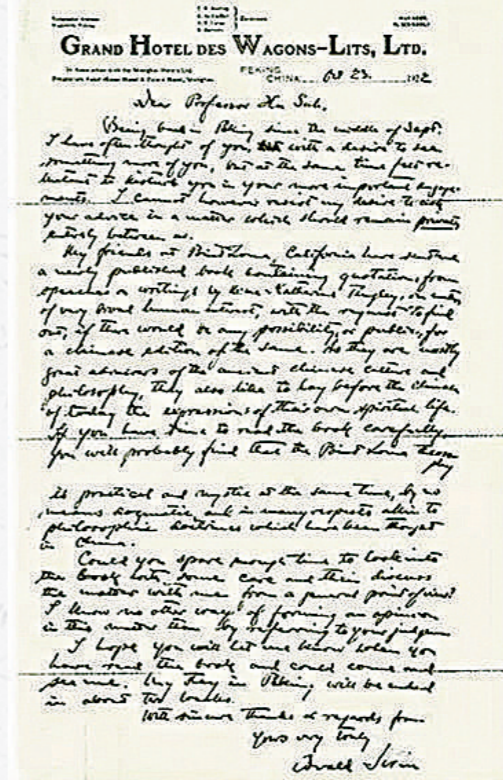 GRAND HOTEL DES WAGONS-LITS, LTD.
PEKING
CHINA Oct 23. 1922
Dear Professor Hu Suh.
Being back in Peking since the middle of Sept.
I have often thought of you, with a desire to see
something more of you, but at the same time felt re-
luctant to disturb you in your more important engage-
ments. I cannot however resist my desire to ask
your advice in a matter which should remain private
entirely between us.
My friends at Point Loma, California have sent me
a newly published book containing quotations from
speeches or writings by Katherine Tingley,
of very broad human interest, with the request to find
out, if there would be any possibility, or public, for
a chinese edition of the same. As they are mostly
great admirers of the ancient chinese culture and
philosophy, they also like to lay before the Chinese
of today the expressions of their own spiritual life.
If you have time to read the book carefully
you will probably find that the Point Loma theoso-
phy
is practical and mystic at the same time, by no
means dogmatic and in many respects akin to
philosophic doctrines which have been thought
in China.
Could you spare enough time to look into
the book with some care and then discuss
the matter with me from a general point of view?
I know no other way of forming an opinion
in this matter than by referring to your judgment
I hope you will let me know when you
have read the book and could come and
see me. My stay in Peking will be ended
in about two weeks.
With sincere thanks & regards from
Yours very truly
Osvald Sirén